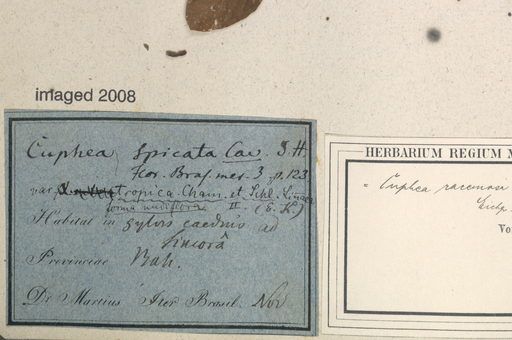 imaged 2008
Cuphea spicata Cav. S. H.
Flor. Bras. mer. 3, p. 123
var. tropica. Cham. et Schl. Linnaea
II (E. K.)
Habitat in sylvis caeduis ad
Sincorá
Provinciae Bah.
Dr. Martius Iter Brasil. Nov
HERBARIUM REGIUM M
= Cuphea racemosa
Vo